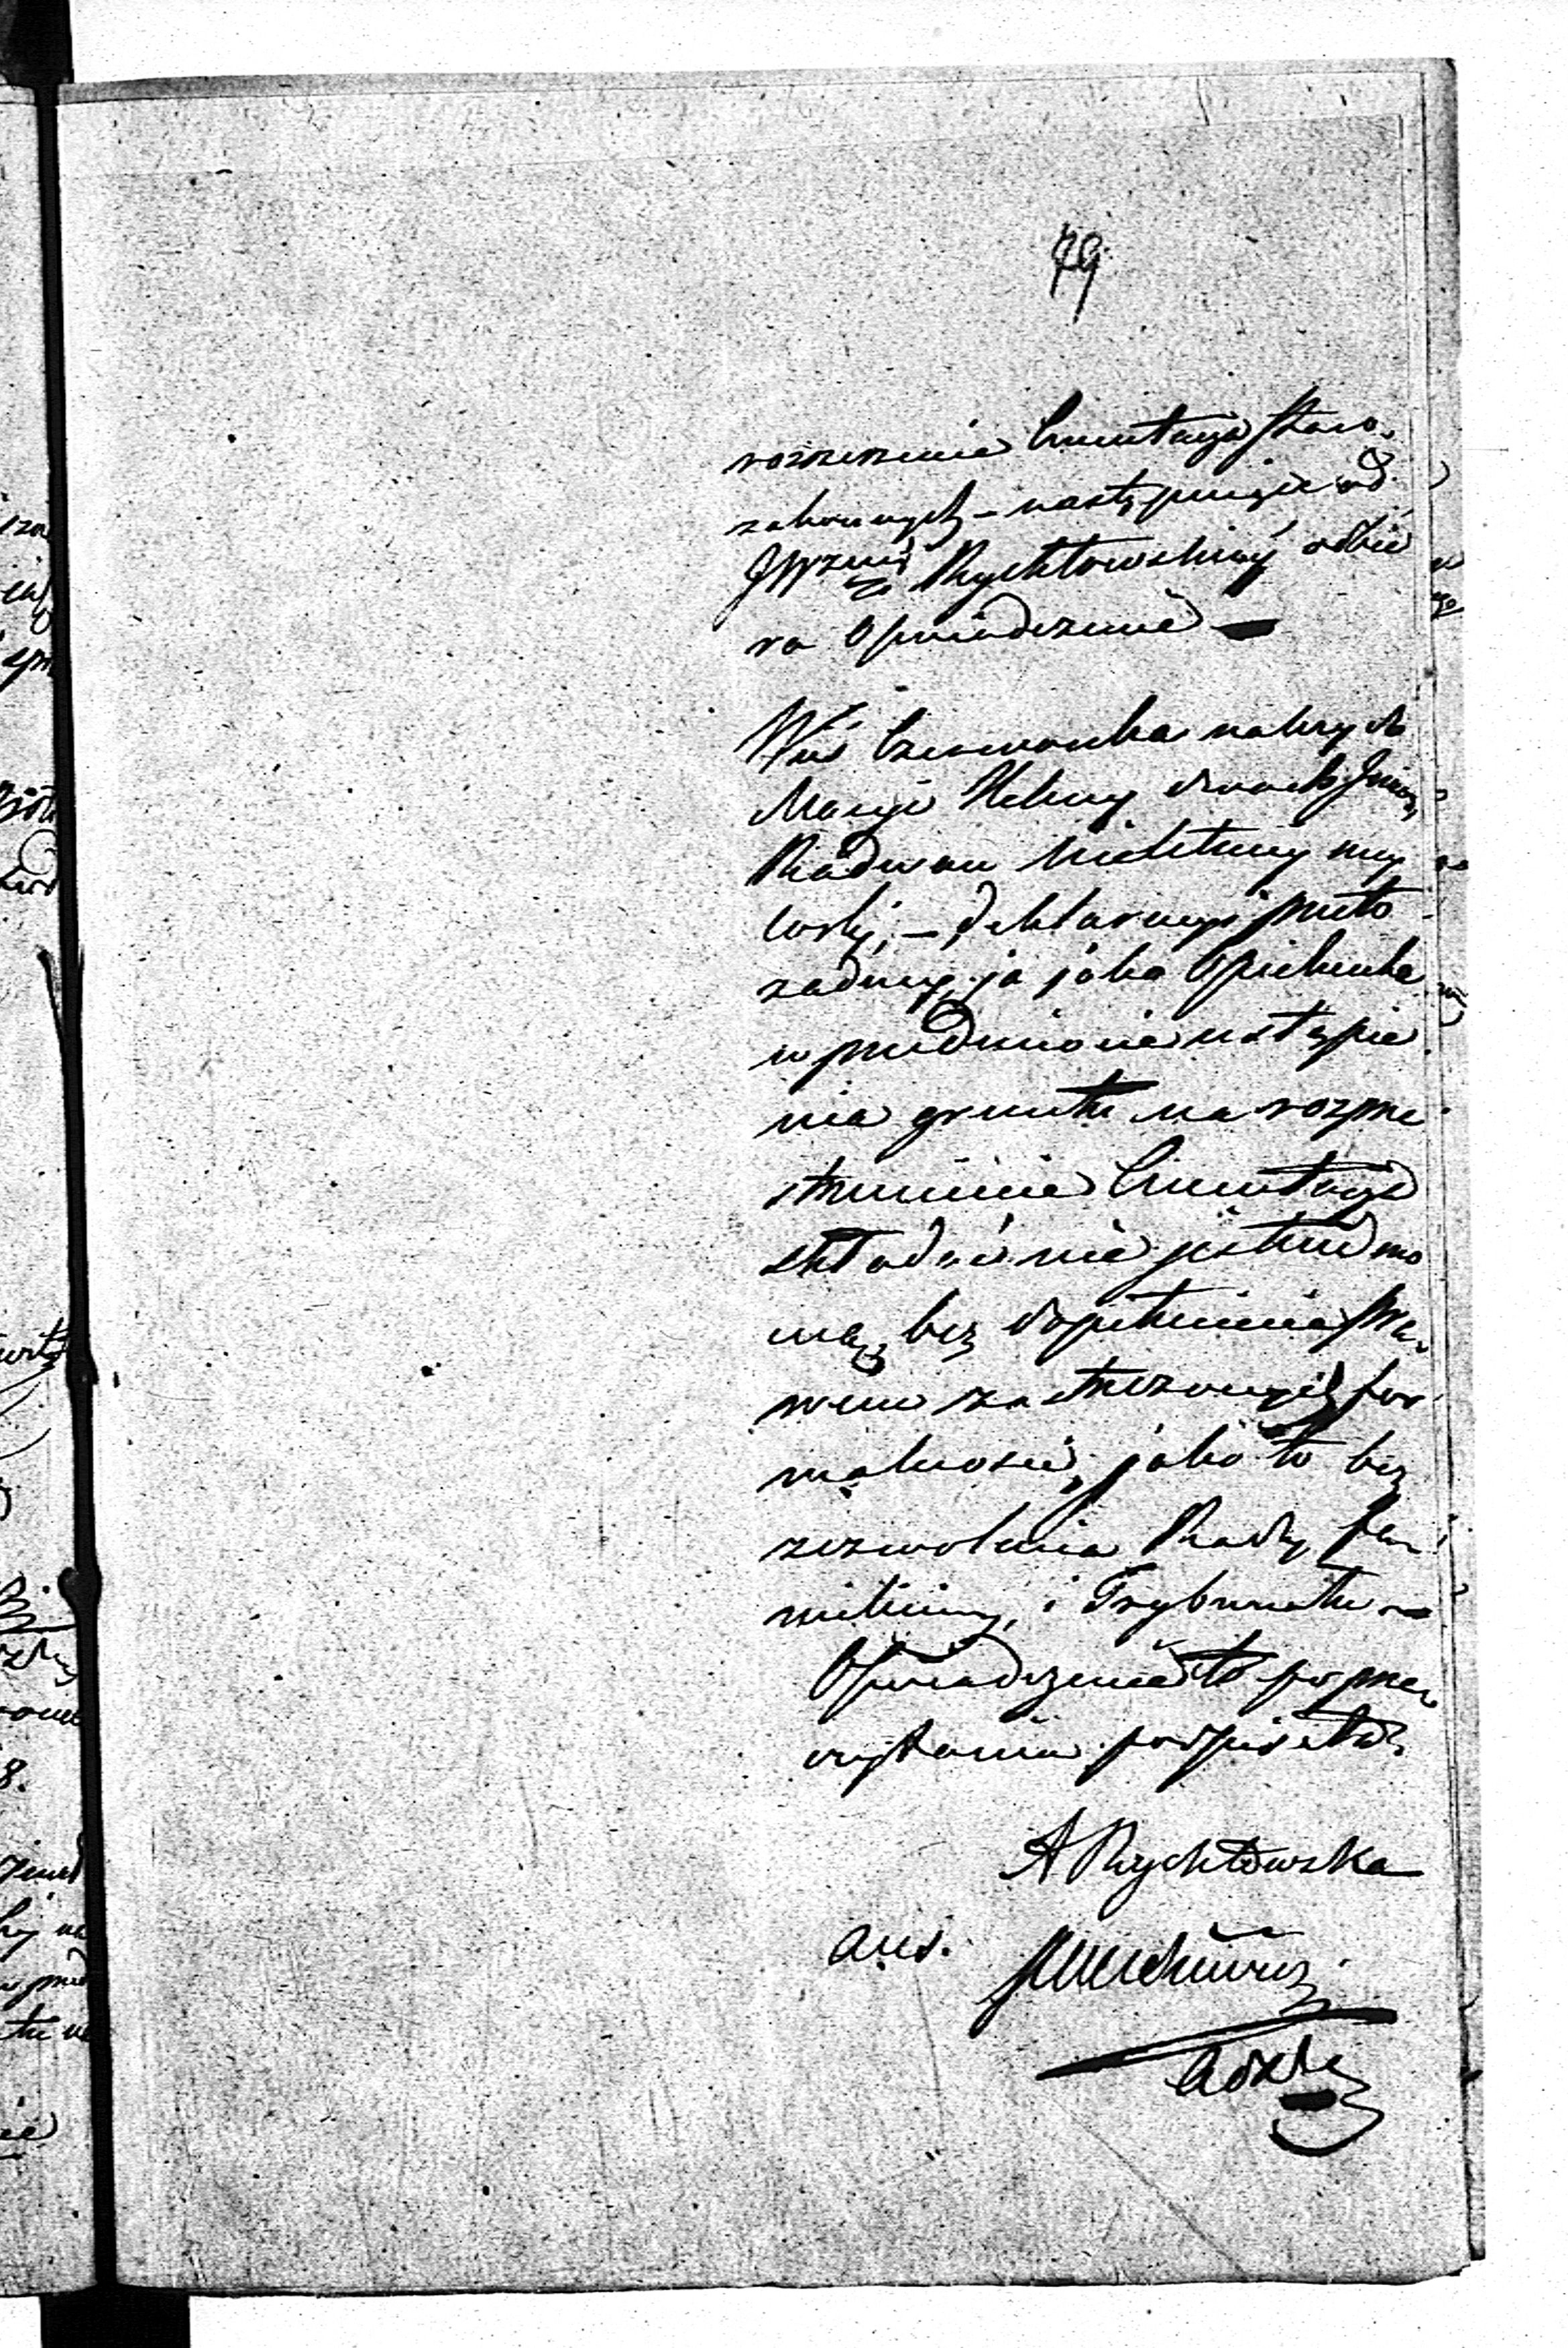 79
rozszerzenie Cmentarza Staro
zakonnych – następujące od
JWżney Rychłowskiey odbie
ra Oświadczenie —
Wieś Czerwonka należy do
Maryi Heleny dwoch Imion
Radwan nieletniey mey
Corki, – deklaracyi przeto
zadney, ja jako Opiekunka
w przedmiocie ustąpie
nia gruntu na rozprze
strzenienie Cmentarza
składać nie jestem mo
cną, bez dopełnienia Pra
wem zastrzeżonych for
malności, jako to bez
zezwolenia Rady fa
miliiney, i Trybunału –
Oświadczenie to po prze
czytaniu podpisała
A Rychłowska